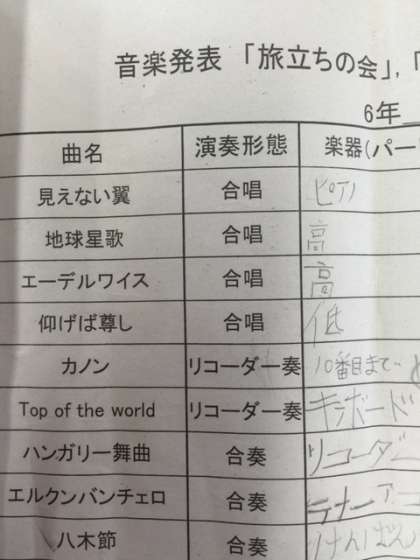 音楽発表 「旅立ちの会」,「
6年
曲名 演奏形態 楽器(パー
見えない翼 合唱 ピアノ
地球星歌 合唱 高
エーデルワイス 合唱 高
仰げば尊し 合唱 低
カノン リコーダー奏 10番目まで
Top of the world リコーダー奏 キーボード
ハンガリー舞曲 合奏 リコーダー
エルクンバンチェロ 合奏 テナーア
八木節 合奏 けんばん